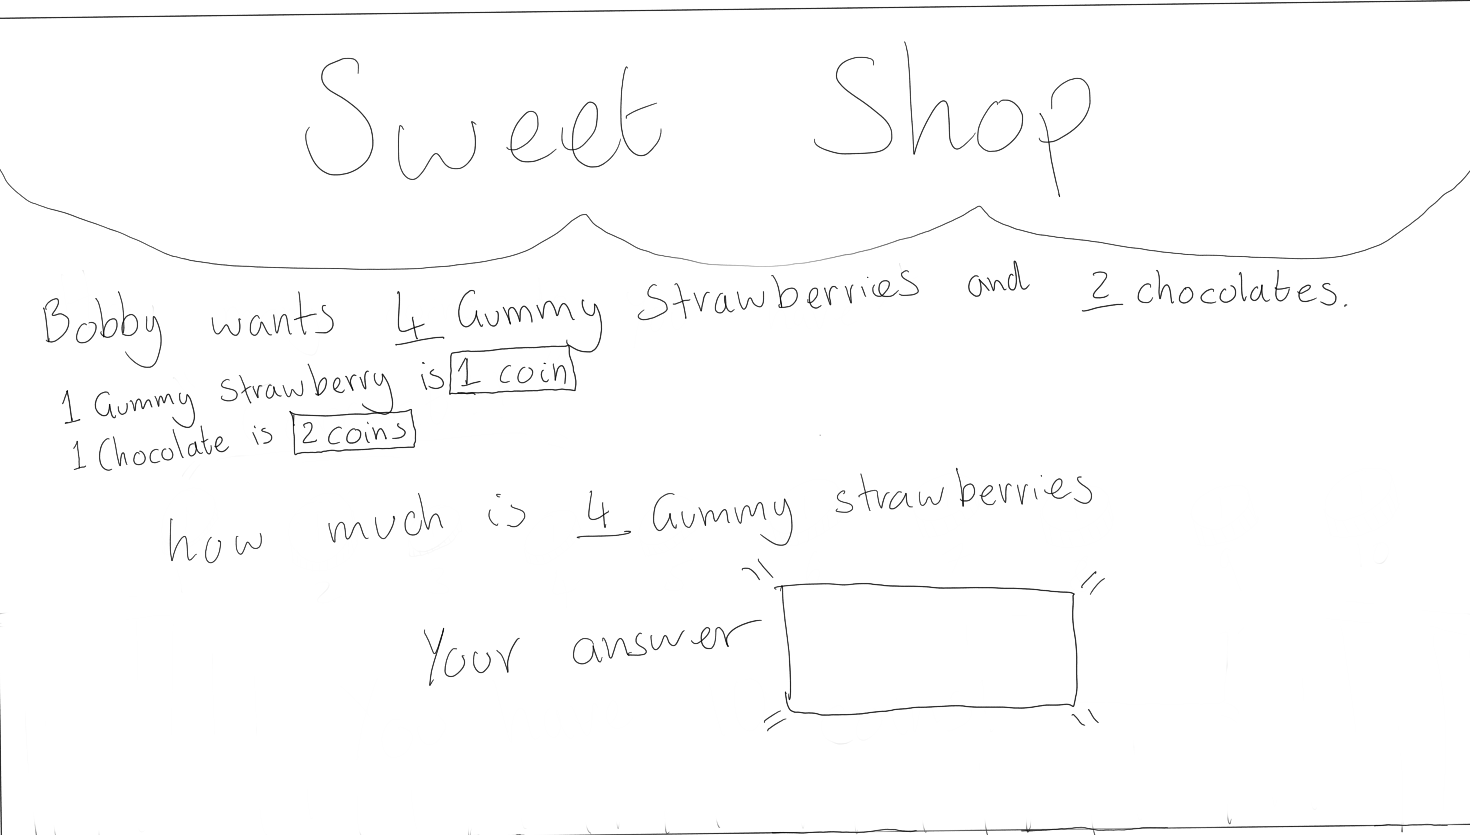 Sweet Shop
Bobby wants 4 Gummy Strawberries and 2 chocolates.
1 Gummy strawberry is 1 coin
1 Chocolate is 2 coins
how much is 4 Gummy strawberries
Your answer